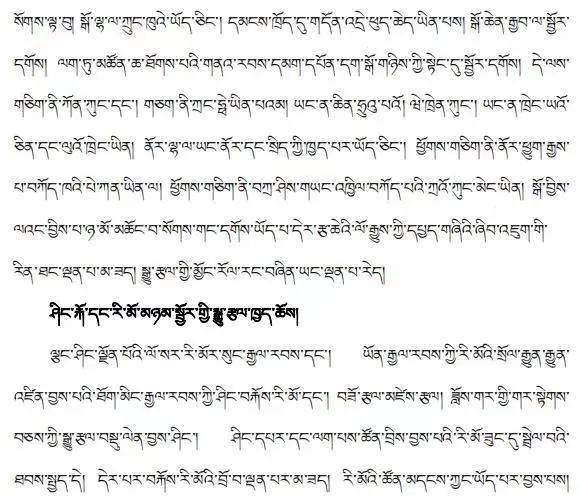 སོགས་ལྟ་བུ། སྒོ་ལྷ་ལ་ཀྲུང་ཁུའེ་ཡོད་ཅིང་། དམངས་ཁྲོད་དུ་གདོན་འདྲེ་ཕུད་ཆེད་ཡིན་པས། སྒོ་ཆེན་རྒྱབ་ལ་སྦྱོར་
དགོས། ལག་ཏུ་མཚོན་ཆ་ཐོགས་པའི་གནའ་རབས་དམག་དཔོན་དག་སྒོ་གཉིས་ཀྱི་སྟེང་དུ་སྦྱོར་དགོས། དེ་ལས་
གཅིག་ནི་ཀོན་ཀུང་དང་། གཅག་ནི་ཀྲང་ཧྥེ་ཡིན་པའམ། ཡང་ན་ཆིན་ཧྲུའུ་པའོ། ཝེ་ཁྲེན་ཀུང་། ཡང་ན་ཁྲེང་ཡའོ་
ཅིན་དང་ལུའོ་ཁྲེང་ཡིན། ནོར་ལྷ་ལ་ཡང་ནོར་དང་སྲིད་ཀྱི་ཁྱད་པར་ཡོད་ཅིང་། ཕྱོགས་གཅིག་ནི་ནོར་ཕྱུག་རྒྱས་
པ་བཀོད་ཁའི་པེ་ཀན་ཡིན་ལ། ཕྱོགས་གཅིག་ནི་བཀྲ་ཤིས་གཡང་འཁྱིལ་བཀོད་པའི་ཀྲའོ་ཀུང་མེང་ཡིན། སྒོ་བྱིས་
ལའང་བྱིས་པ་ཉ་མོ་མཆོང་བ་སོགས་གང་དགོས་ཡོད་པ་དེར་རྩ་ཆེའི་ལོ་རྒྱུས་ཀྱི་དཔྱད་གཞིའི་ཞིབ་འཇུག་གི་
རིན་ཐང་ལྡན་པ་མ་ཟད། སྒྱུ་རྩལ་གྱི་མྱོང་རོལ་རང་བཞིན་ཡང་ལྡན་པ་རེད།
ཤིང་རྐོ་དང་རི་མོ་མཉམ་སྦྱོར་གྱི་སྒྱུ་རྩལ་ཁྱད་ཆོས།
ལྕང་ཤིང་ལྗོན་པོའི་ལོ་སར་རི་མོར་སུང་རྒྱལ་རབས་དང་། ཡོན་རྒྱལ་རབས་ཀྱི་རི་མོའི་སྲོལ་རྒྱུན་རྒྱུན་
འཛིན་བྱས་པའི་ཐོག་མིང་རྒྱལ་རབས་ཀྱི་ཤིང་བརྐོས་རི་མོ་དང་། བཟོ་རྩལ་མཛེས་རྩལ། ཟློས་གར་གྱི་གར་སྟེགས་
བཅས་ཀྱི་སྒྱུ་རྩལ་བསྡུ་ལེན་བྱས་ཤིང་། ཤིང་དཔར་དང་ལག་པས་ཚོན་བྲིས་བྱས་པའི་རི་མོ་ཟུང་དུ་སྦྲེལ་བའི་
ཐབས་སྤྱད་དེ། དེར་པར་བརྐོས་རི་མོའི་བྲོ་བ་ལྡན་པར་མ་ཟད། རི་མོའི་ཚོན་མདངས་ཀྱང་ཡོད་པར་བྱས་པས།